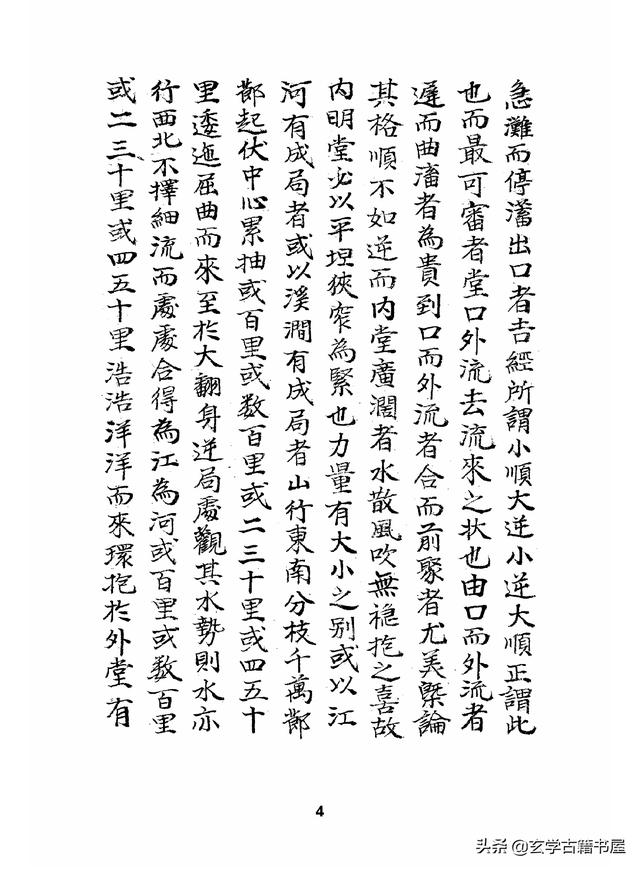 急灘而停瀋出口者吉經所謂小順大逆小逆大順正謂此
也而最可審者堂口外流去流來之狀也由口而外流者
遲而曲瀋者為貴到口而外流者合而前聚者尤美槩論
其格順不如逆而內堂廣濶者水散風吹無襐抱之喜故
内明堂必以平坦狹窄為緊也力量有大小之别或以江
河有成局者或以溪澗有成局者山行東南分枝千萬鄼
鄼起伏中心累抽或百里或数百里或二三十里或四五十
里逶迤屈曲而來至於大翻身逆局處觀其水勢則水亦
行西北不擇細流而處處合得為江為河或百里或数百里
或二三十里或四五十里浩浩洋洋而來環抱於外堂有
4
头条@玄学古籍书屋